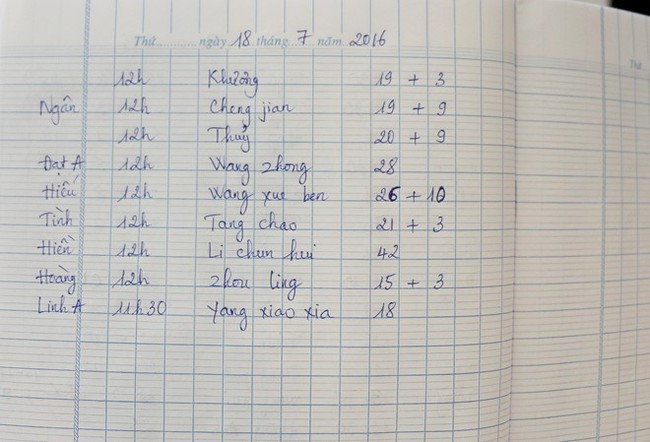 Thứ............ngày 18 tháng 7 năm 2016
12h Khương 19 + 3
Ngân 12h Cheng jian 19 + 9
12h Thuỷ 20 + 9
Đạt A 12h Wang zhong 28
Hiếu 12h Wang xue ben 26 + 10
Tình 12h Tang chao 21 + 3
Hiền 12h Li chun hui 42
Hoàng 12h Zhou ling 15 + 3
Linh A 11h30 Yang xiao xia 18
Thứ